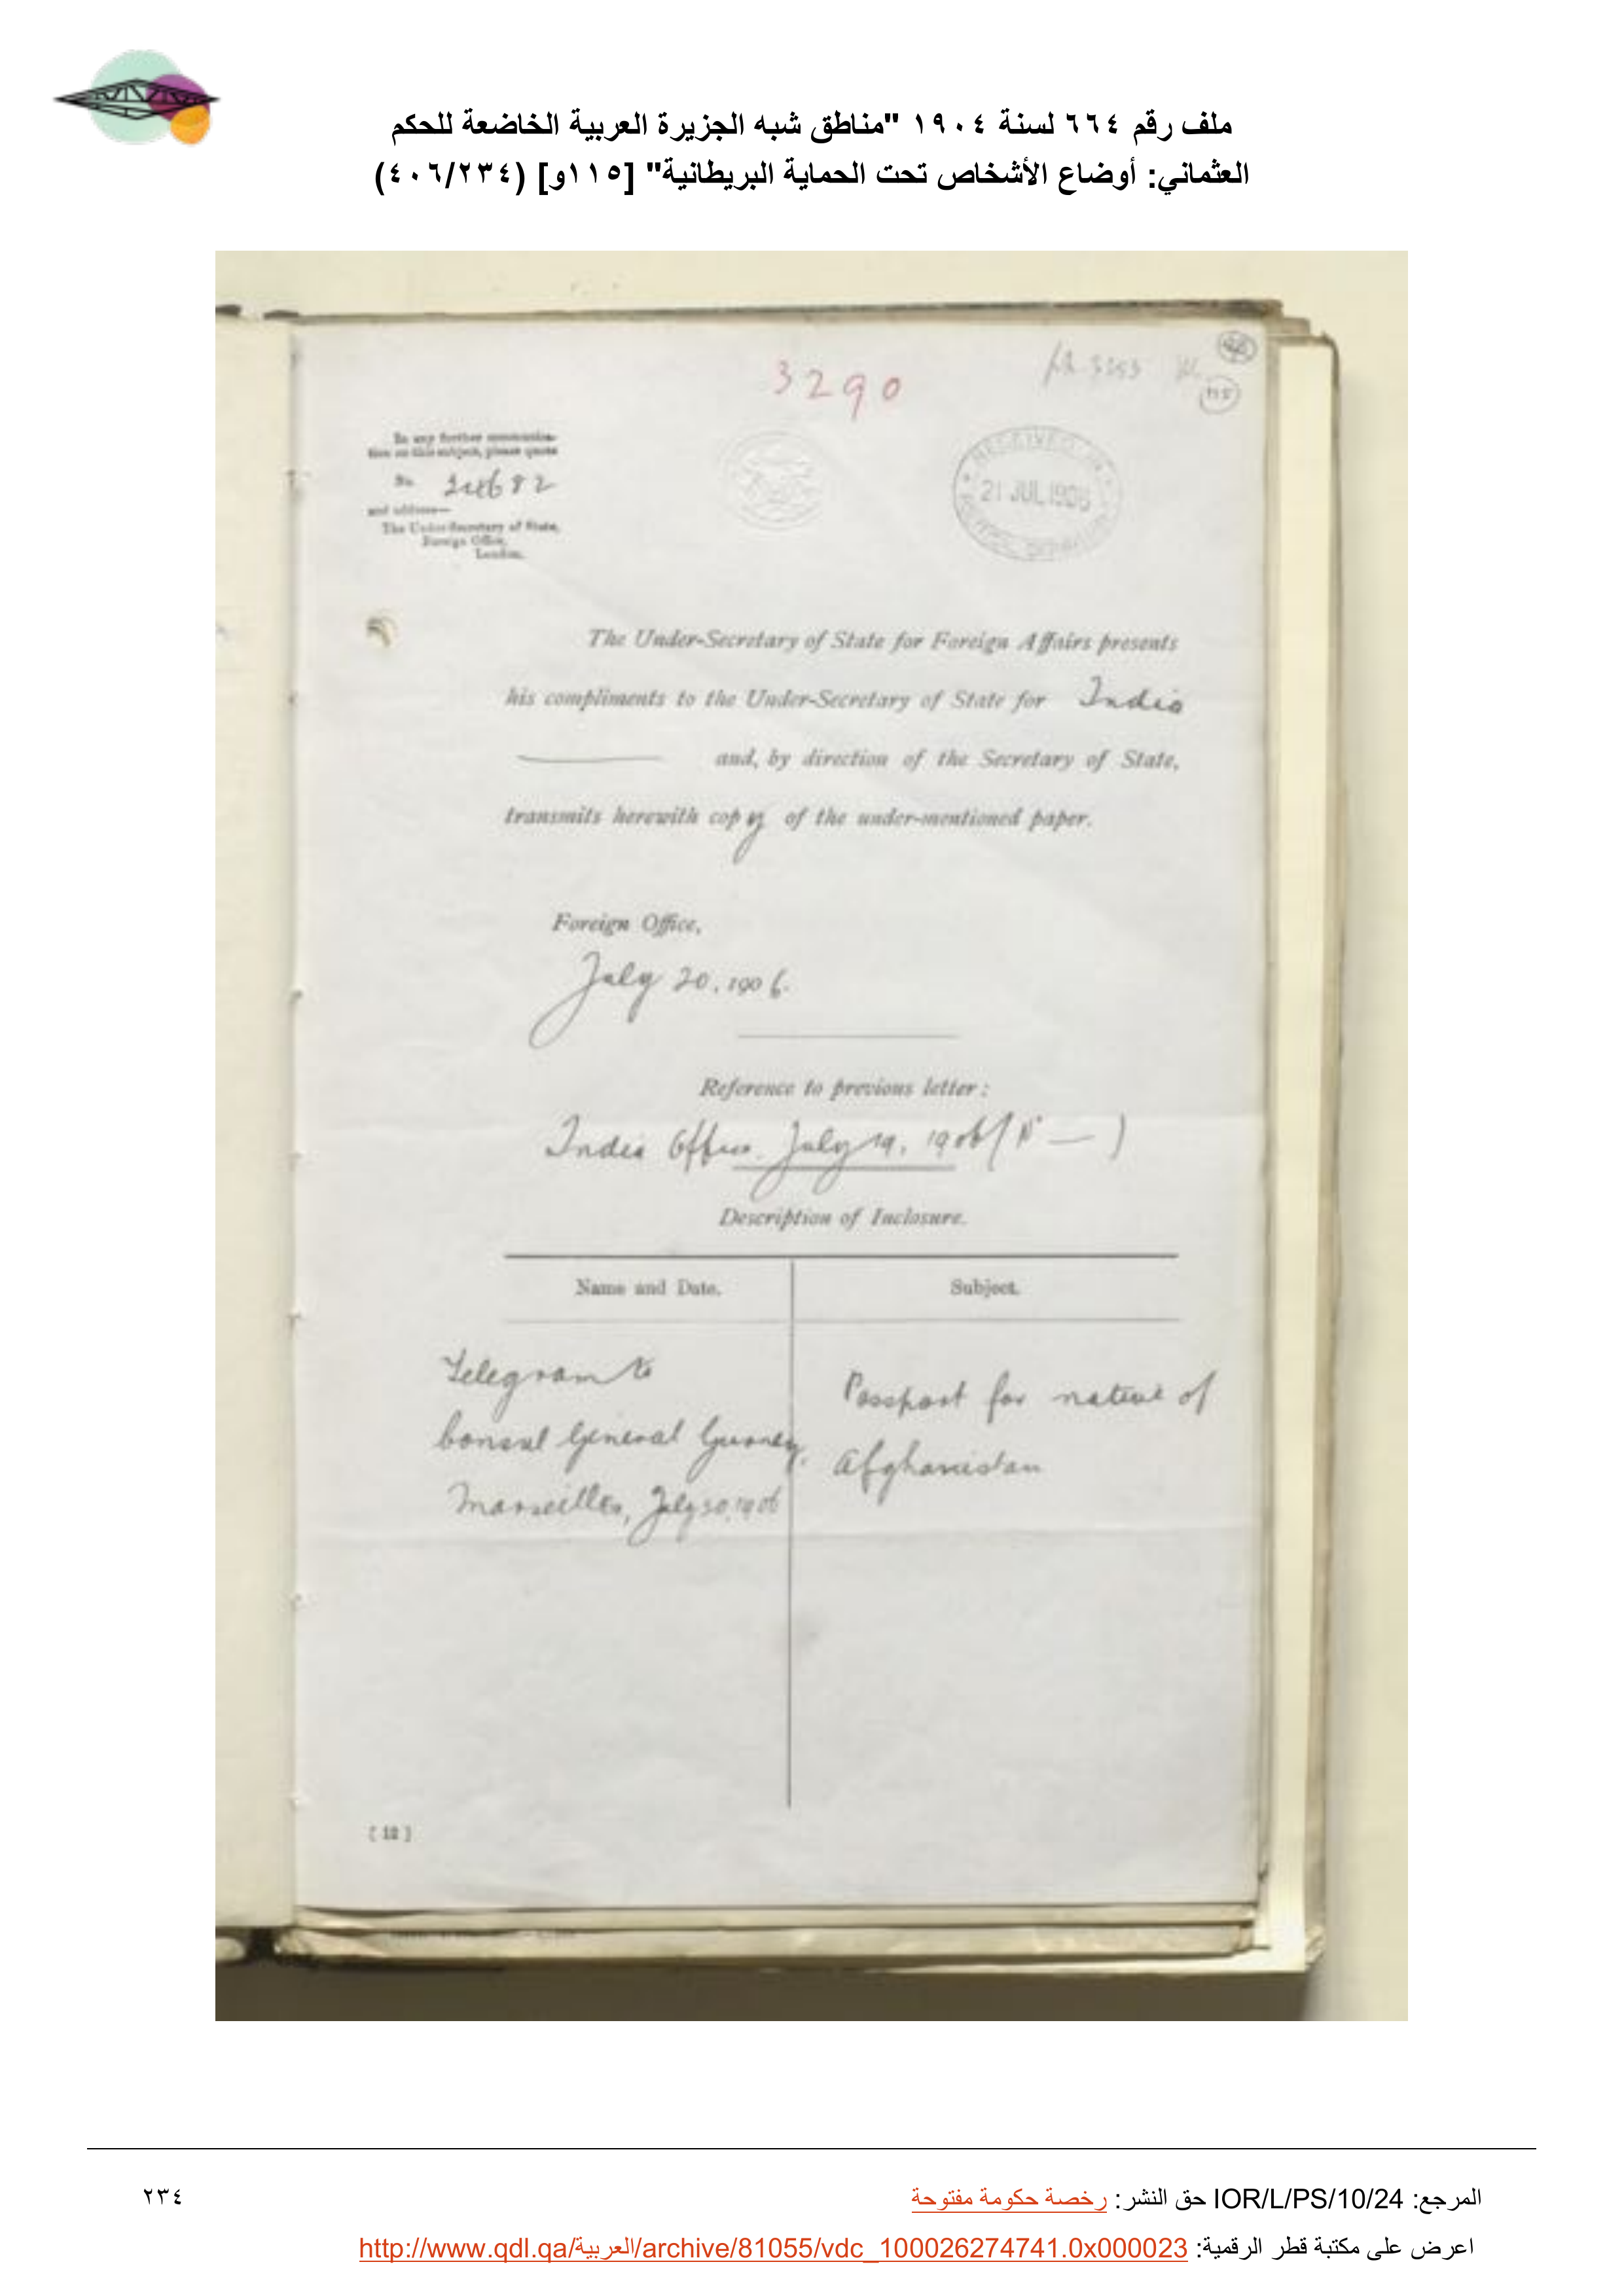 ملف رقم ٦٦٤ لسنة ١٩٠٤ "مناطق شبه الجزيرة العربية الخاضعة للحكم
العثماني: أوضاع الأشخاص تحت الحماية البريطانية" [١١٥و] (٤٠٦/٢٣٤)
3290
115
In any further communica-
tion on this subject, please quote
No.
and address—
The Under-Secretary of State,
Foreign Office,
London.
RECEIVED IN
21 JUL 1906
POLITICAL DEPARTMENT
The Under-Secretary of State for Foreign Affairs presents
his compliments to the Under-Secretary of State for India
and, by direction of the Secretary of State,
transmits herewith copy of the under-mentioned paper.
Foreign Office,
July 20, 1906.
Reference to previous letter:
India Office. July 19, 1906 (N° — )
Description of Inclosure.
Name and Date.
Subject.
Telegram to
Consul General Gurney,
Marseilles, July 20, 1906
Passport for native of
Afghanistan
[12]
المرجع: IOR/L/PS/10/24 حق النشر: رخصة حكومة مفتوحة
٢٣٤
اعرض على مكتبة قطر الرقمية: http://www.qdl.qa/العربية/archive/81055/vdc_100026274741.0x000023